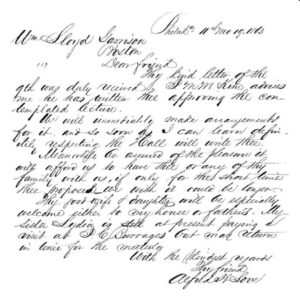 Philada. 11th Mo 19, 1863
Wm Lloyd Garrison
Boston
Dear friend
Thy kind letter of the
9th was duly received. J M M Kim advises
me he has written thee approving the con-
templated lecture.
We will immediately make arrangements
for it and so soon as I can learn defin-
itely respecting the Hall will write thee.
Meanwhile be assured of the pleasure it
will afford us to have thee or any of thy
family with us, if only for the short time
thee proposes, we wish it could be longer.
Thy good wife & daughter will be especially
welcome either to my house or father's. My
sister Lydia is still at present paying a
visit at J C Burrages but may return
in time for the meeting
With the kindest regards
Thy friend
Alfred H Love